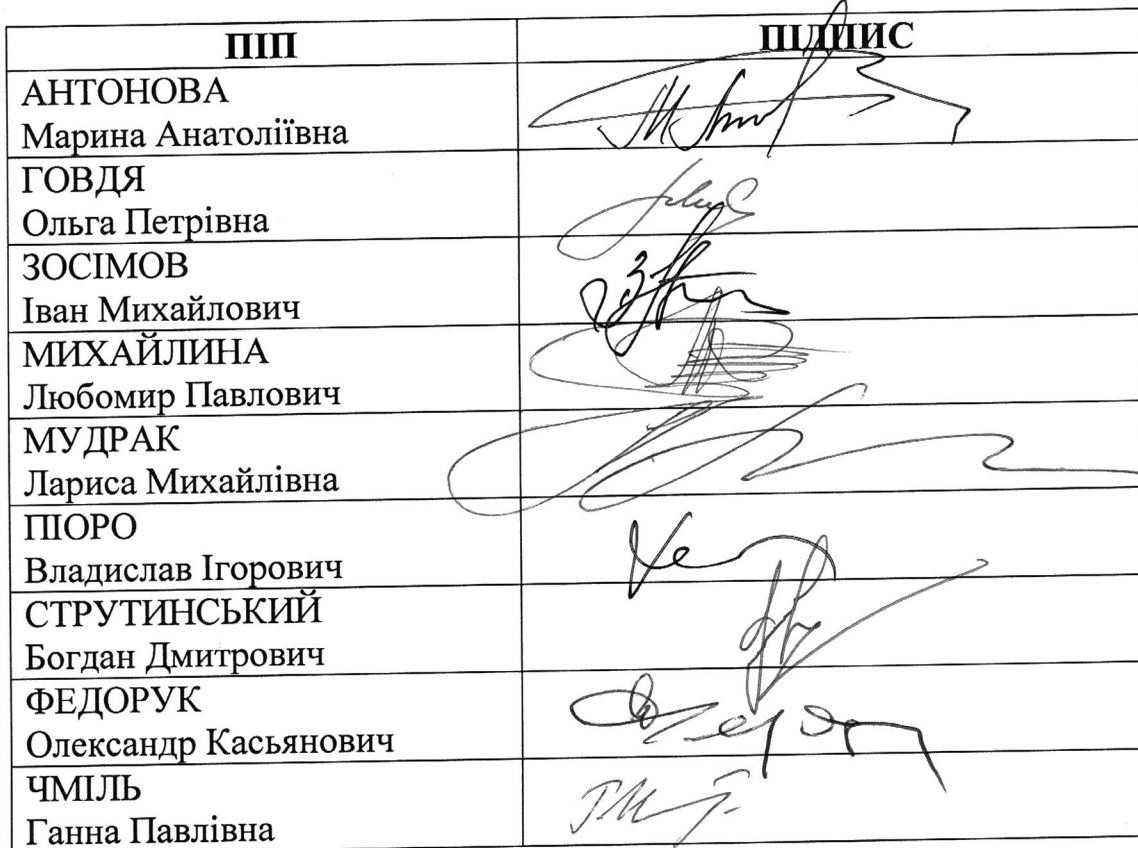 ПІП ПІДПИС
АНТОНОВА
Марина Анатоліївна
ГОВДЯ
Ольга Петрівна
ЗОСІМОВ
Іван Михайлович
МИХАЙЛИНА
Любомир Павлович
МУДРАК
Лариса Михайлівна
ПІОРО
Владислав Ігорович
СТРУТИНСЬКИЙ
Богдан Дмитрович
ФЕДОРУК
Олександр Касьянович
ЧМІЛЬ
Ганна Павлівна